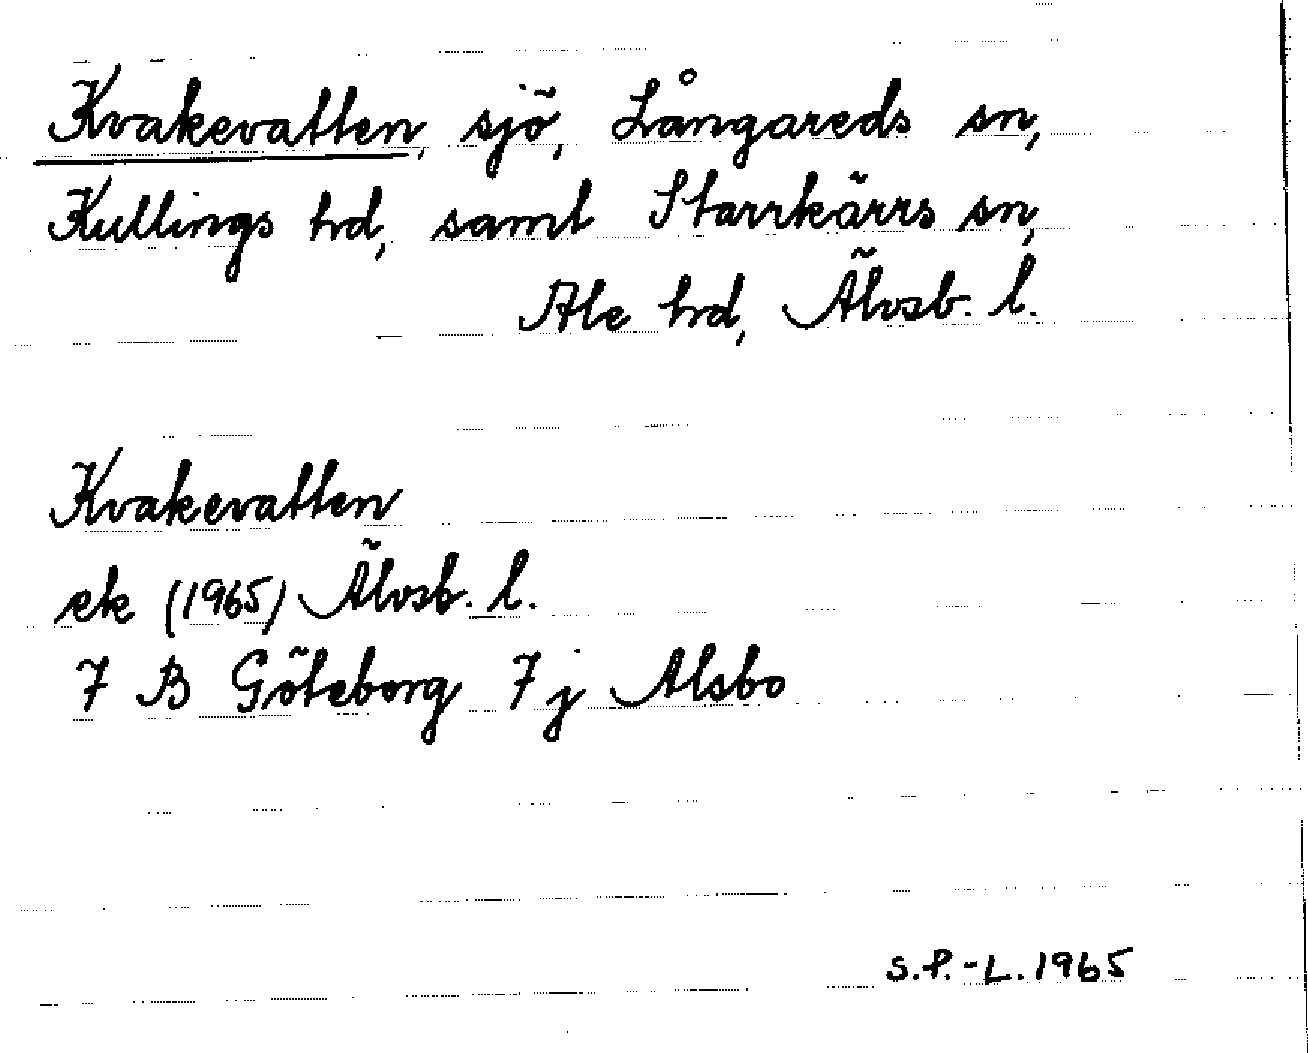 Kvakevatten, sjö, Långareds sn,
Kullings hd, samt Starrkärrs sn,
Ale hd, Älvsb. l.
Kvakevatten
ek (1965) Älvsb. l.
7 B Göteborg 7 j Alsbo
S.P.-L. 1965